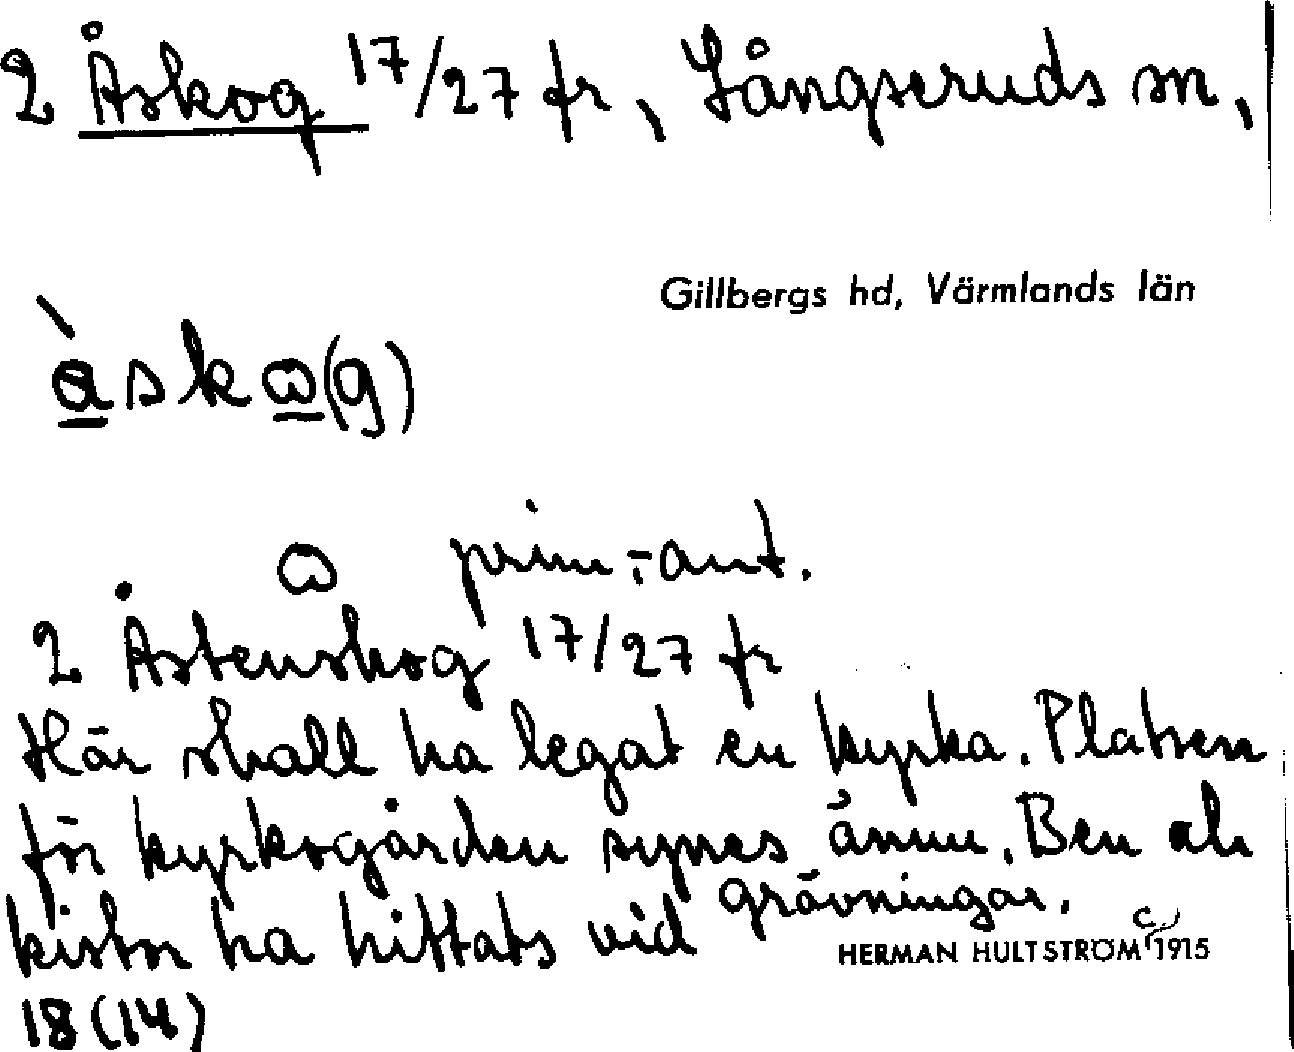 2 Åskog 17/27 fr, Långseruds sn,
Gillbergs hd, Värmlands län
àskω(g)
ω prim.-ant.
2 Åstenskog 17/27 fr
Här skall ha legat en kyrka. Platsen
för kyrkogården synes ännu. Ben och
kistor ha hittats vid grävningar.
HERMAN HULTSTRÖM c 1915
18(14)